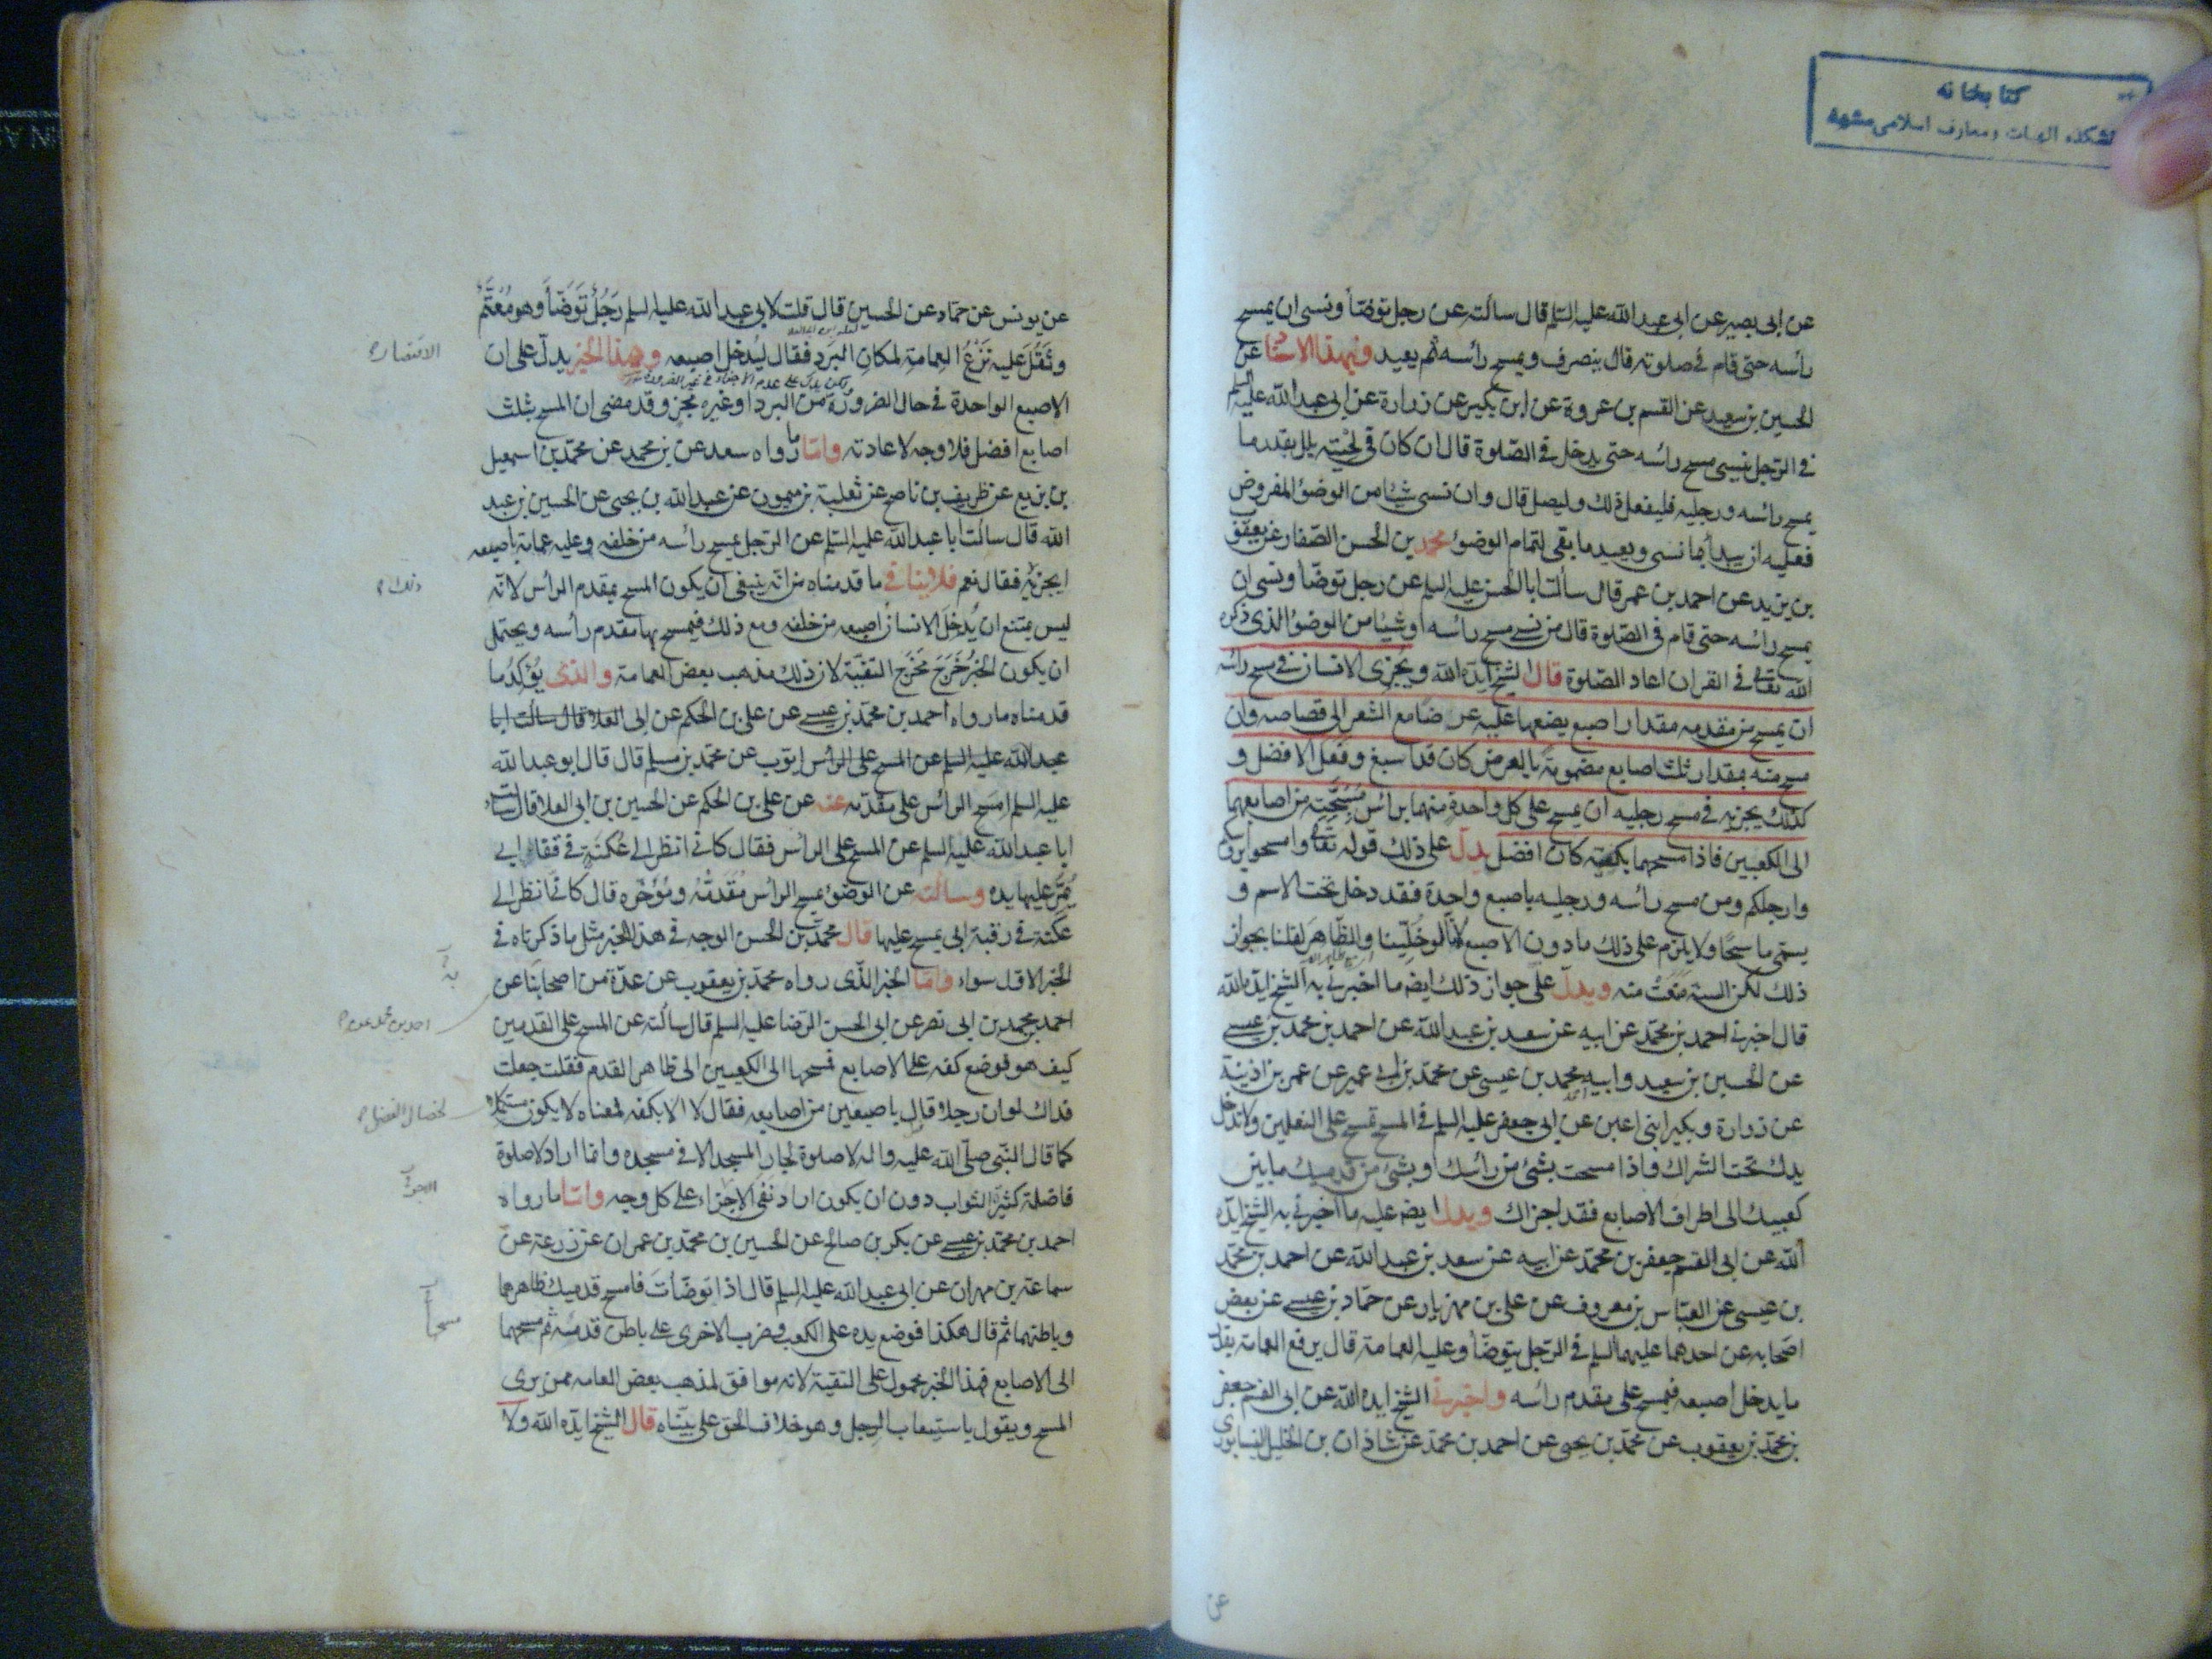 كتابخانه
دانشكده الهيات ومعارف اسلامى مشهد
عن ابى بصير عن ابى عبد الله عليه السلم قال سالته عن رجل توضأ ونسى ان يمسح
رأسه حتى قام فى صلوته قال ينصرف ويمسح رأسه ثم يعيد وبهذا الاسناد عن
الحسين بن سعيد عن القسم بن عروة عن ابن بكير عن زرارة عن ابى عبد الله عليه السلم
فى الرجل ينسى مسح رأسه حتى يدخل فى الصلوة قال ان كان فى لحيته بلل بقدر ما
يمسح رأسه ورجليه فليفعل ذلك وليصل قال وان نسى شيئا من الوضوء المفروض
فعليه ان يبدأ بما نسى ويعيد ما بقى لتمام الوضوء محمد بن الحسن الصفار عن يعقوب
بن يزيد عن احمد بن عمر قال سالت ابا الحسن عليه السلم عن رجل توضأ ونسى ان
يمسح رأسه حتى قام فى الصلوة قال من نسى مسح رأسه او شيئا من الوضوء الذى ذكره
الله تعالى فى القران اعاد الصلوة قال الشيخ ايده الله ويجزى الانسان فى مسح رأسه
ان يمسح من مقدمه مقدار اصبع يضعها عليه عرضا مع الشعر الى قصاصه وان
مسح منه بمقدار ثلث اصابع مضمومة بالعرض كان قد اسبغ وفعل الافضل و
كذلك يجزيه فى مسح رجليه ان يمسح على كل واحدة منهما برأس مسبحته من اصابعهما
الى الكعبين فاذا مسحهما بكفيه كان افضل يدل على ذلك قوله تعالى وامسحوا برؤسكم
وارجلكم ومن مسح رأسه ورجليه باصبع واحدة فقد دخل تحت الاسم و
يسمى ماسحا ولا يلزم على ذلك ما دون الاصبع لانا لو خلينا والظاهر لقلنا بجواز
ذلك لكن السنة منعت منه ويدل على جواز ذلك ايضا ما اخبرنى به الشيخ ايده الله
قال اخبرنى احمد بن محمد عن ابيه عن سعد بن عبد الله عن احمد بن محمد بن عيسى
عن الحسين بن سعيد وابيه محمد بن عيسى عن محمد بن ابى عمير عن عمر بن اذينة
عن زرارة وبكير ابنى اعين عن ابى جعفر عليه السلم فى المسح تمسح على النعلين ولا تدخل
يدك تحت الشراك واذا مسحت بشئ من رأسك او بشئ من قدميك ما بين
كعبيك الى اطراف الاصابع فقد اجزاك ويدل ايضا عليه ما اخبرنى به الشيخ ايده
الله عن ابى القسم جعفر بن محمد عن ابيه عن سعد بن عبد الله عن احمد بن محمد
بن عيسى عن العباس بن معروف عن على بن مهزيار عن حماد بن عيسى عن بعض
اصحابه عن احدهما عليهما السلم فى الرجل يتوضأ وعليه العمامة قال يرفع العمامة بقدر
ما يدخل اصبعه فيمسح على مقدم رأسه واخبرنى الشيخ ايده الله عن ابى القسم جعفر
بن محمد بن يعقوب عن محمد بن يحيى عن احمد بن محمد عن شاذان بن الخليل النيسابورى
عن
عن يونس عن حماد عن الحسين قال قلت لابى عبد الله عليه السلم رجل توضأ وهو معتم
وثقل عليه نزع العمامة لمكان البرد فقال ليدخل اصبعه وهذا الخبر يدل على ان
الاقتصار
الاصبع الواحدة فى حال الضرورة من البرد او غيره مجز وقد مضى ان المسح بثلث
اصابع افضل فلا وجه لاعادته واما ما رواه سعد عن بن محمد عن محمد بن اسمعيل
بن بزيع عن ظريف بن ناصح عن ثعلبة بن ميمون عن عبد الله بن يحيى عن الحسين بن عبد
الله قال سالت ابا عبد الله عليه السلم عن الرجل يمسح رأسه من خلفه وعليه عمامة باصبعه
ايجزيه فقال نعم فلا ينافى ما قدمناه من انه ينبغى ان يكون المسح بمقدم الرأس لانه
ذلك
ليس يمتنع ان يدخل الانسان اصبعه من خلفه ومع ذلك فيمسح بها مقدم رأسه ويحتمل
ان يكون الخبر خرج مخرج التقية لان ذلك مذهب بعض العامة والذى يؤكد ما
قدمناه ما رواه احمد بن محمد بن عيسى عن على بن الحكم عن ابى العلا قال سالت ابا
عبد الله عليه السلم عن المسح على الرأس ايوب عن محمد بن مسلم قال قال ابو عبد الله
عليه السلم امسح الرأس على مقدمه عنه عن على بن الحكم عن الحسين بن ابى العلا قال سالت
ابا عبد الله عليه السلم عن المسح على الرأس فقال كانى انظر الى عكنة فى قفاء ابى
يمر عليها يده وسالته عن الوضوء يمسح الرأس مقدمه ومؤخره قال كانى انظر الى
عكنة فى رقبة ابى يمسح عليها قال محمد بن الحسن الوجه فى هذا الخبر مثل ما ذكرناه فى
الخبر الاول سواء واما الخبر الذى رواه محمد بن يعقوب عن عدة من اصحابنا عن
احمد بن محمد عن
احمد بن محمد بن ابى نصر عن ابى الحسن الرضا عليه السلم قال سالته عن المسح على القدمين
كيف هو فوضع كفه على الاصابع فمسحها الى الكعبين الى ظاهر القدم فقلت جعلت
فداك لو ان رجلا قال باصبعين من اصابعه فقال لا الا بكفه فمعناه لا يكون مستكملا
لخصال الفضل
كما قال النبى صلى الله عليه واله لا صلوة لجار المسجد الا فى مسجده وانما اراد لا صلوة
فاضلة كثيرة الثواب دون ان يكون اراد نفى الاجزاء على كل وجه واما ما رواه
احمد بن محمد بن عيسى عن بكر بن صالح عن الحسين بن محمد بن عمران عن زرعة عن
سماعة بن مهران عن ابى عبد الله عليه السلم قال اذا توضأت فامسح قدميك ظاهرهما
وباطنهما ثم قال هكذا فوضع يده على الكعب وضرب الاخرى على باطن قدمه ثم مسحهما
مسحا
الى الاصابع فهذا الخبر محمول على التقية لانه موافق لمذهب بعض العامه ممن يرى
المسح ويقول باستيعاب الرجل وهو خلاف الحق على بيناه قال الشيخ ايده الله ولا